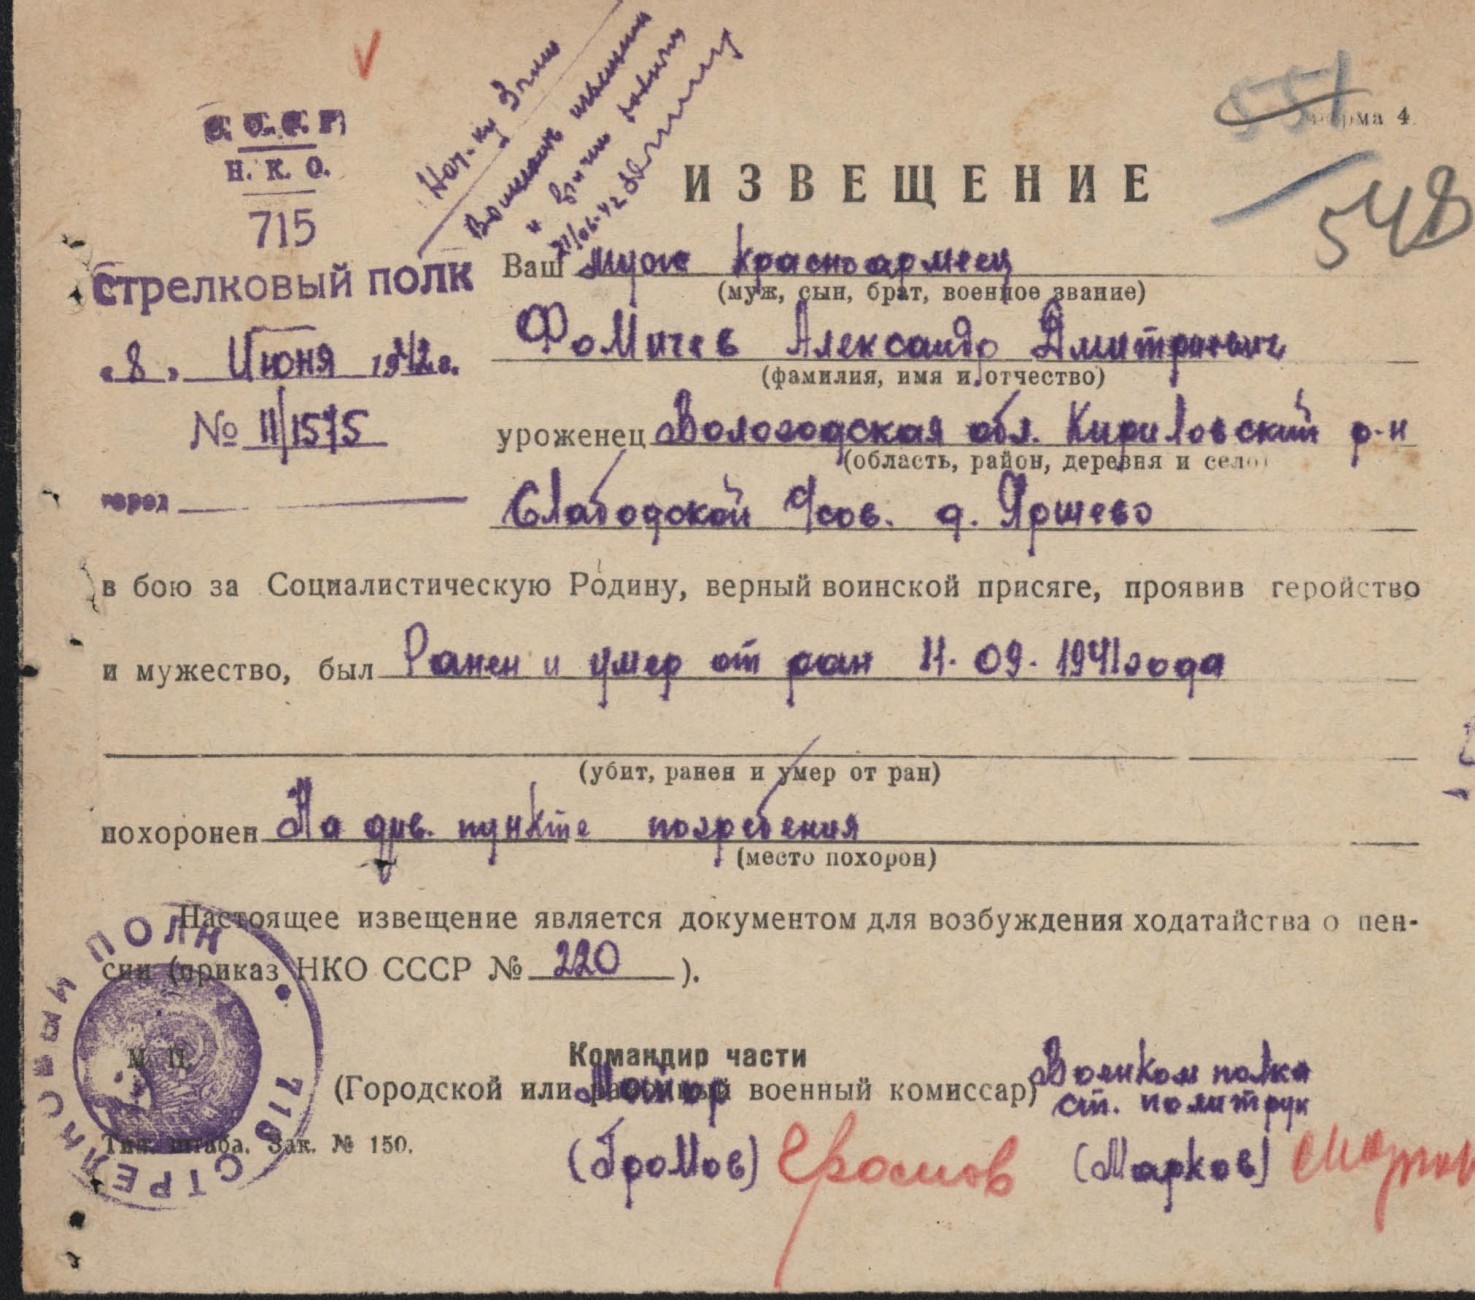 С.С.С.Р.
Н. К. О.
715
Стрелковый полк
"8" Июня 1942 г.
№ 11/1515
город
Нач-ку
21/06-42
551
Форма 4
548
ИЗВЕЩЕНИЕ
Ваш муж красноармеец
(муж, сын, брат, военное звание)
Фомичев Александр Дмитриевич
(фамилия, имя и отчество)
уроженец Вологодская обл. Кириловский р-н
(область, район, деревня и село)
Слабодской с/сов. д. Яршево
в бою за Социалистическую Родину, верный воинской присяге, проявив геройство
и мужество, был Ранен и умер от ран 11.09.1941 года
(убит, ранен и умер от ран)
похоронен На див. пункте погребения
(место похорон)
Настоящее извещение является документом для возбуждения ходатайства о пен-
сии (приказ НКО СССР № 220 ).
М. П.
Командир части
(Городской или районный военный комиссар)
Майор
Военком полка
ст. политрук
(Громов) Громов (Марков)
Тип. штаба. Зак. № 150.
715 СТРЕЛКОВЫЙ ПОЛК